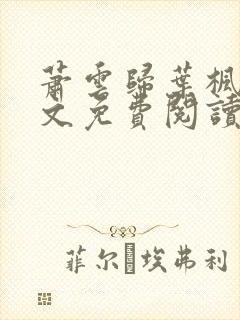 蕭雲歸葉楓
文免費閱讀
菲尔埃弗利